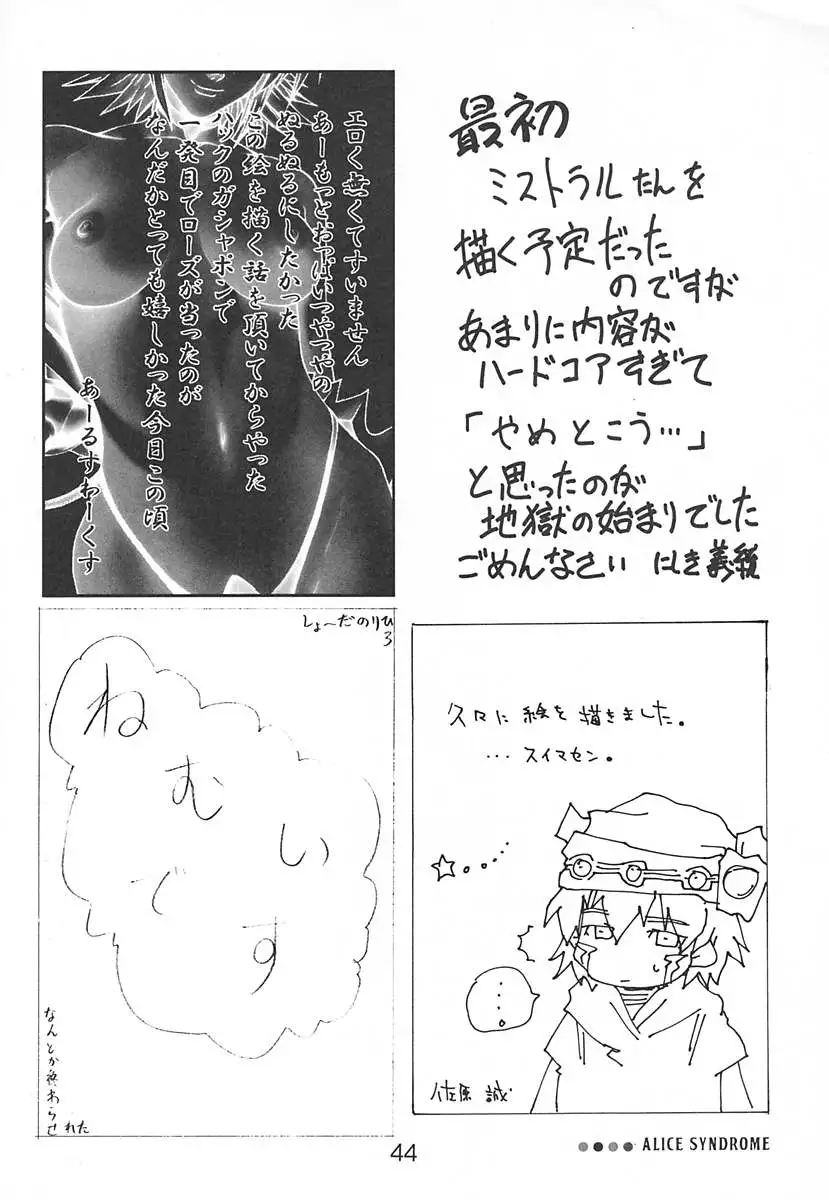 最初
ミストラルたんを
描く予定だった
のですが
あまりに内容が
ハードコアすぎて
「やめとこう…」
と思ったのが
地獄の始まりでした
ごめんなさい にしき義統
エロく無くてすいません
あーもっとおっぱいつやつやの
ぬるぬるにしたかった
この絵を描く話を頂いてからやった
ハックのガシャポンで
一発目でローズが当ったのが
なんだかとっても嬉しかった今日この頃
あーるすわーくす
しょ〜だのりひ
ろ
ねむいです
なんとか終わらせ
れた
久々に絵を描きました。
…スイマセン。
....。
佐原 誠
44
ALICE SYNDROME